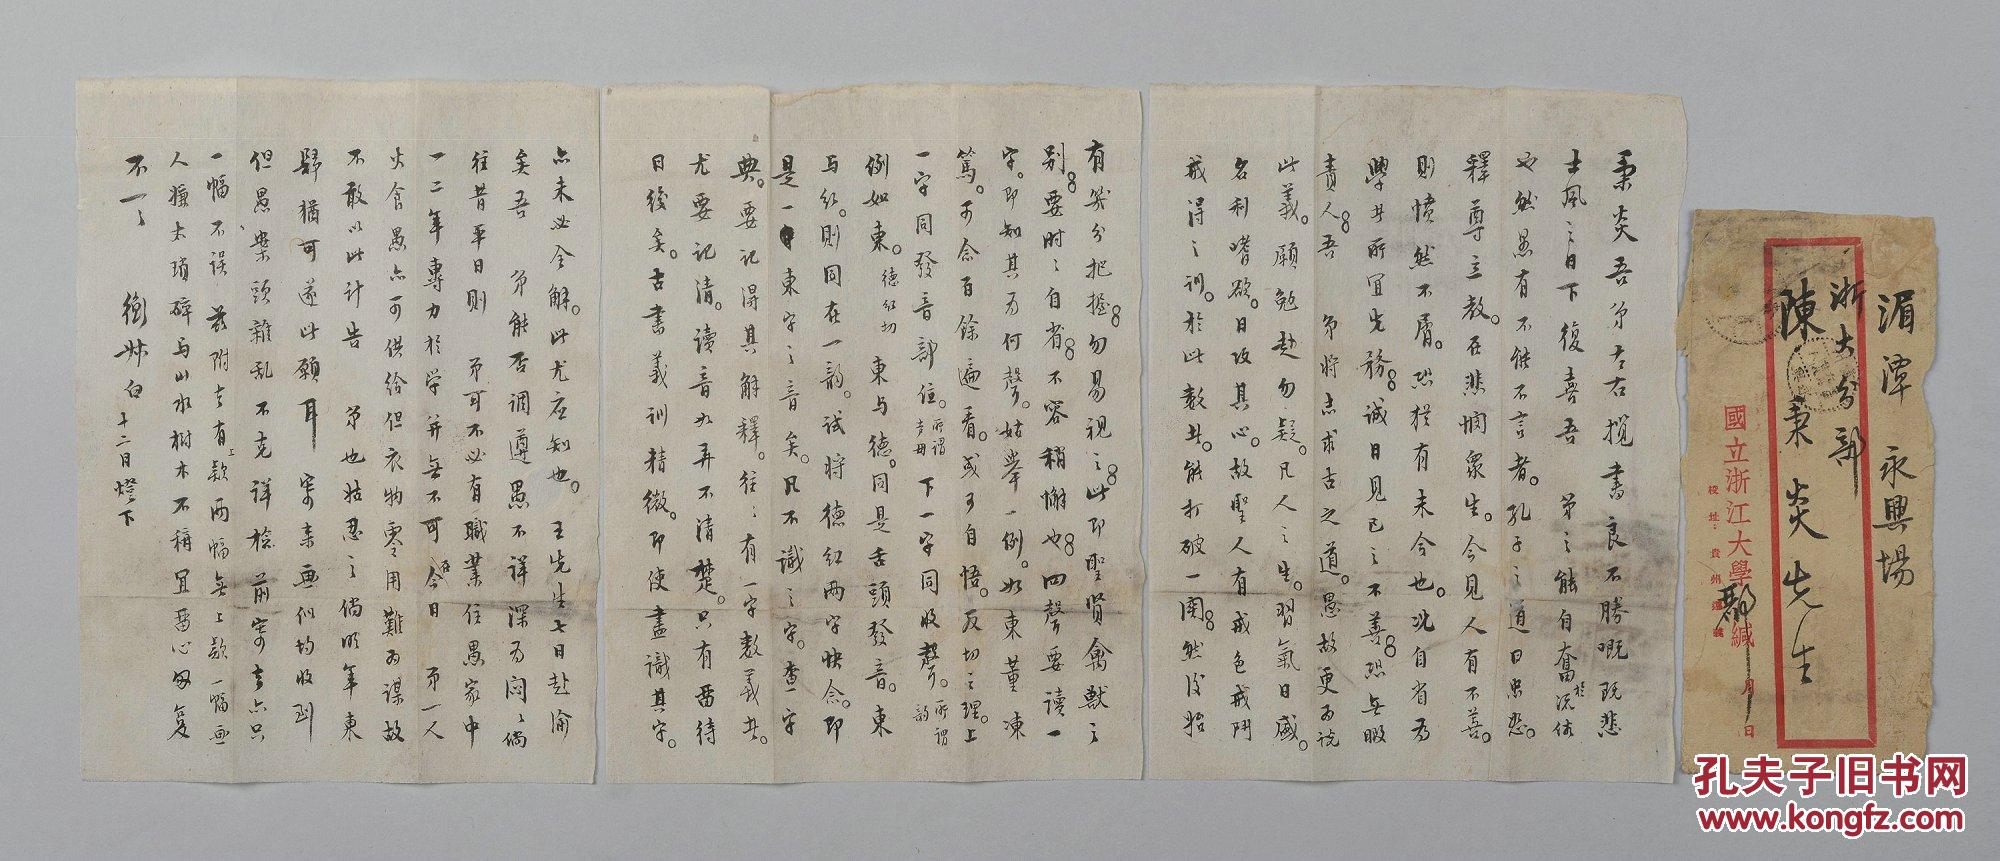 秉炎吾弟左右攬書良不勝嘅既悲
士風之日下復喜吾　弟之能自奮於流俗
也然愚有不能不言者。孔子之道曰忠恕。
釋尊立教。在悲憫眾生。今見人有不善。
則憤然不屑。恐猶有未合也。況自省為
學其所宜先務。誠日見己之不善。恐無暇
責人。吾　弟將志求古之道。愚故更為說
此義。願勉赴勿疑。凡人之生。習氣日盛。
名利嗜欲。日攻其心。故聖人有戒色戒鬥
戒得之訓。於此數者。能打破一關。然後始
有幾分把握。勿易視之。此即聖賢禽獸之
別。要時時自省。不容稍懈也。四聲要讀一
字。即知其為何聲。姑舉一例。如東董凍
篤。可念百餘遍看。或可自悟。反切之理。上
一字同發音部位。所謂音母　下一字同收聲。所謂韵
例如東。德紅切　東与德。同是舌頭發音。東
与紅。則同在一韵。試將德紅兩字快念。即
是一東字之音矣。凡不識之字。查一字
典。要記得其解釋。往往有一字數義者。
尤要記清。讀音如弄不清楚。只有留待
日後矣。古書義訓精微。即使盡識其字。
亦未必全解。此尤應知也。王先生七日赴渝
矣吾　弟能否調遵愚不詳深為悶悶倘
往昔平日則　弟可不必有職業住愚家中
一二年專力於學并無不可在今日　弟一人
火食愚亦可供給但衣物零用難為謀故
不敢以此計告　弟也姑忍之倘明年東
歸猶可遂此願耳　寄來畫似均收到
但愚案頭雜亂不克詳檢　前寄去亦只
一幅不誤　茲附去有上款兩幅無上款一幅畫
人獵太瑣碎与山水樹木不稱宜留心匆复
不一一　　衡叔白　十二日燈下
湄潭　永興場
浙大分部
陳秉炎先生
國立浙江大學鄭緘
校址：貴州遵義
月　日
孔夫子旧书网
www.kongfz.com